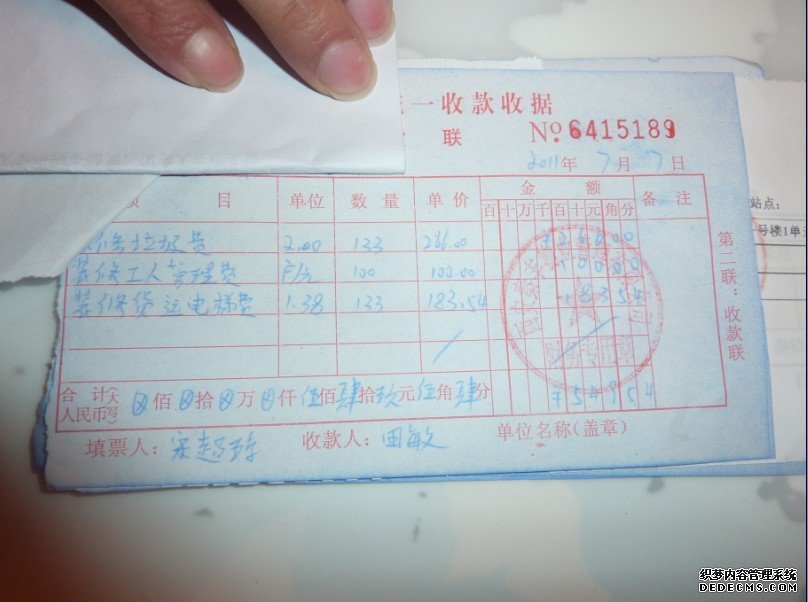 一收款收据
联 No. 6415189
2011年 7月 7日
目 单位 数量 单价 金额 备注
百 十 万 千 百 十 元 角 分
垃圾费 2.00 133 266.00 ¥ 2 6 6 0 0
装修工人管理费 户/元 100 100.00 1 0 0 0 0
装修货运电梯费 1.38 133 183.54 1 8 3 5 4
合计(大写)人民币: ⊗佰⊗拾⊗万⊗仟伍佰肆拾玖元伍角肆分 ¥ 5 4 9 5 4
填票人: 收款人: 田敏 单位名称(盖章)
第二联:收款联
财务专用章
站点:
号楼1单元
织梦内容管理系统
DEDECMS.COM